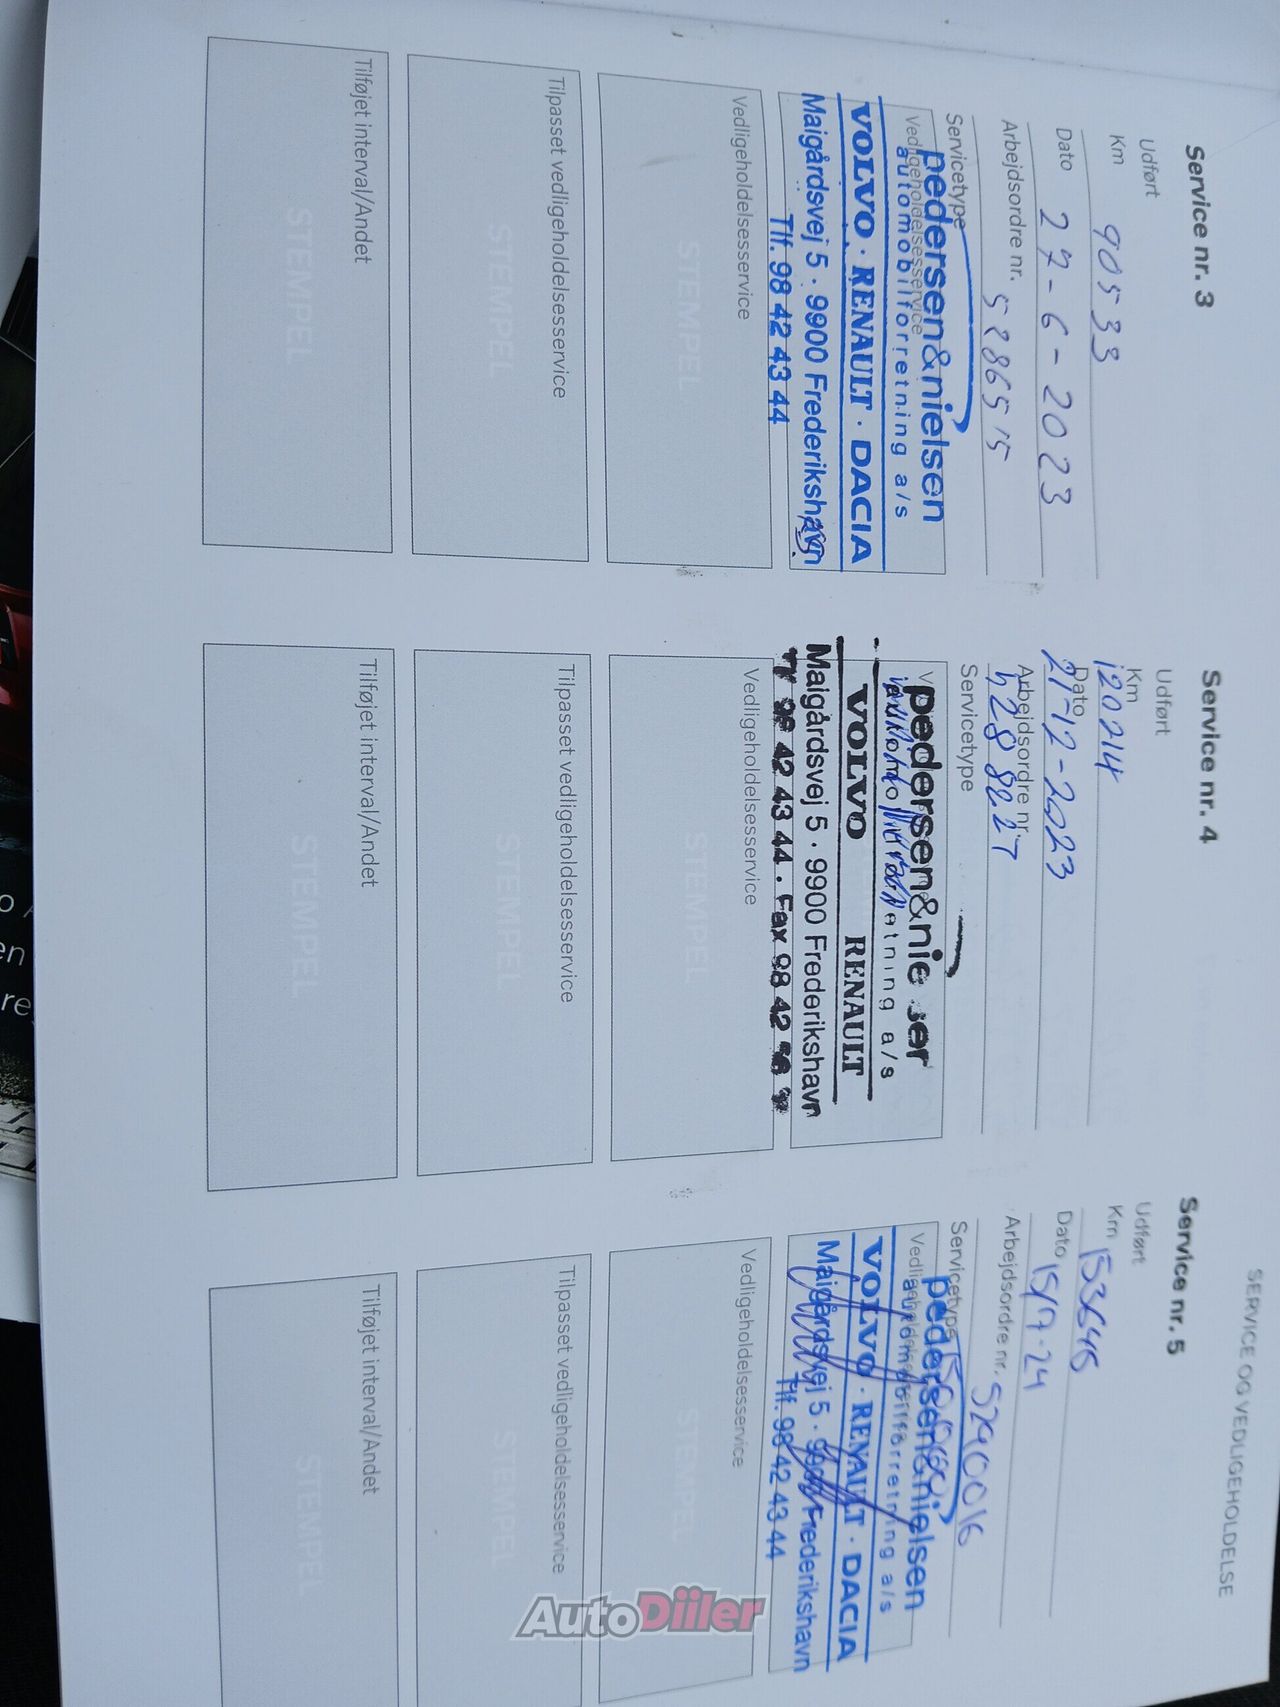 SERVICE OG VEDLIGEHOLDELSE
Service nr. 3
Udført
Km 90533
Dato 27-6-2023
Arbejdsordre nr. 5286515
Servicetype
Vedligeholdelsesservice
pedersen&nielsen
automobilforretning a/s
VOLVO · RENAULT · DACIA
Maigårdsvej 5 · 9900 Frederikshavn
Tlf. 98 42 43 44
Vedligeholdelsesservice
STEMPEL
Tilpasset vedligeholdelsesservice
STEMPEL
Tilføjet interval/Andet
STEMPEL
Service nr. 4
Udført
Km 120214
Dato 21-12-2023
Arbejdsordre nr.
Servicetype
pedersen&nie
etning a/s
VOLVO RENAULT
Maigårdsvej 5 · 9900 Frederikshavn
98 42 43 44 . Fax 98 42
Vedligeholdelsesservice
STEMPEL
Tilpasset vedligeholdelsesservice
STEMPEL
Tilføjet interval/Andet
STEMPEL
Service nr. 5
Udført
Km 153645
Dato 15/7-24
Arbejdsordre nr. 5290016
Servicetype
Vedligeholdelsesservice
pedersen&nielsen
automobilforretning a/s
VOLVO · RENAULT · DACIA
Maigårdsvej 5 · 9900 Frederikshavn
Tlf. 98 42 43 44
Vedligeholdelsesservice
STEMPEL
Tilpasset vedligeholdelsesservice
STEMPEL
Tilføjet interval/Andet
STEMPEL
AutoDiiler